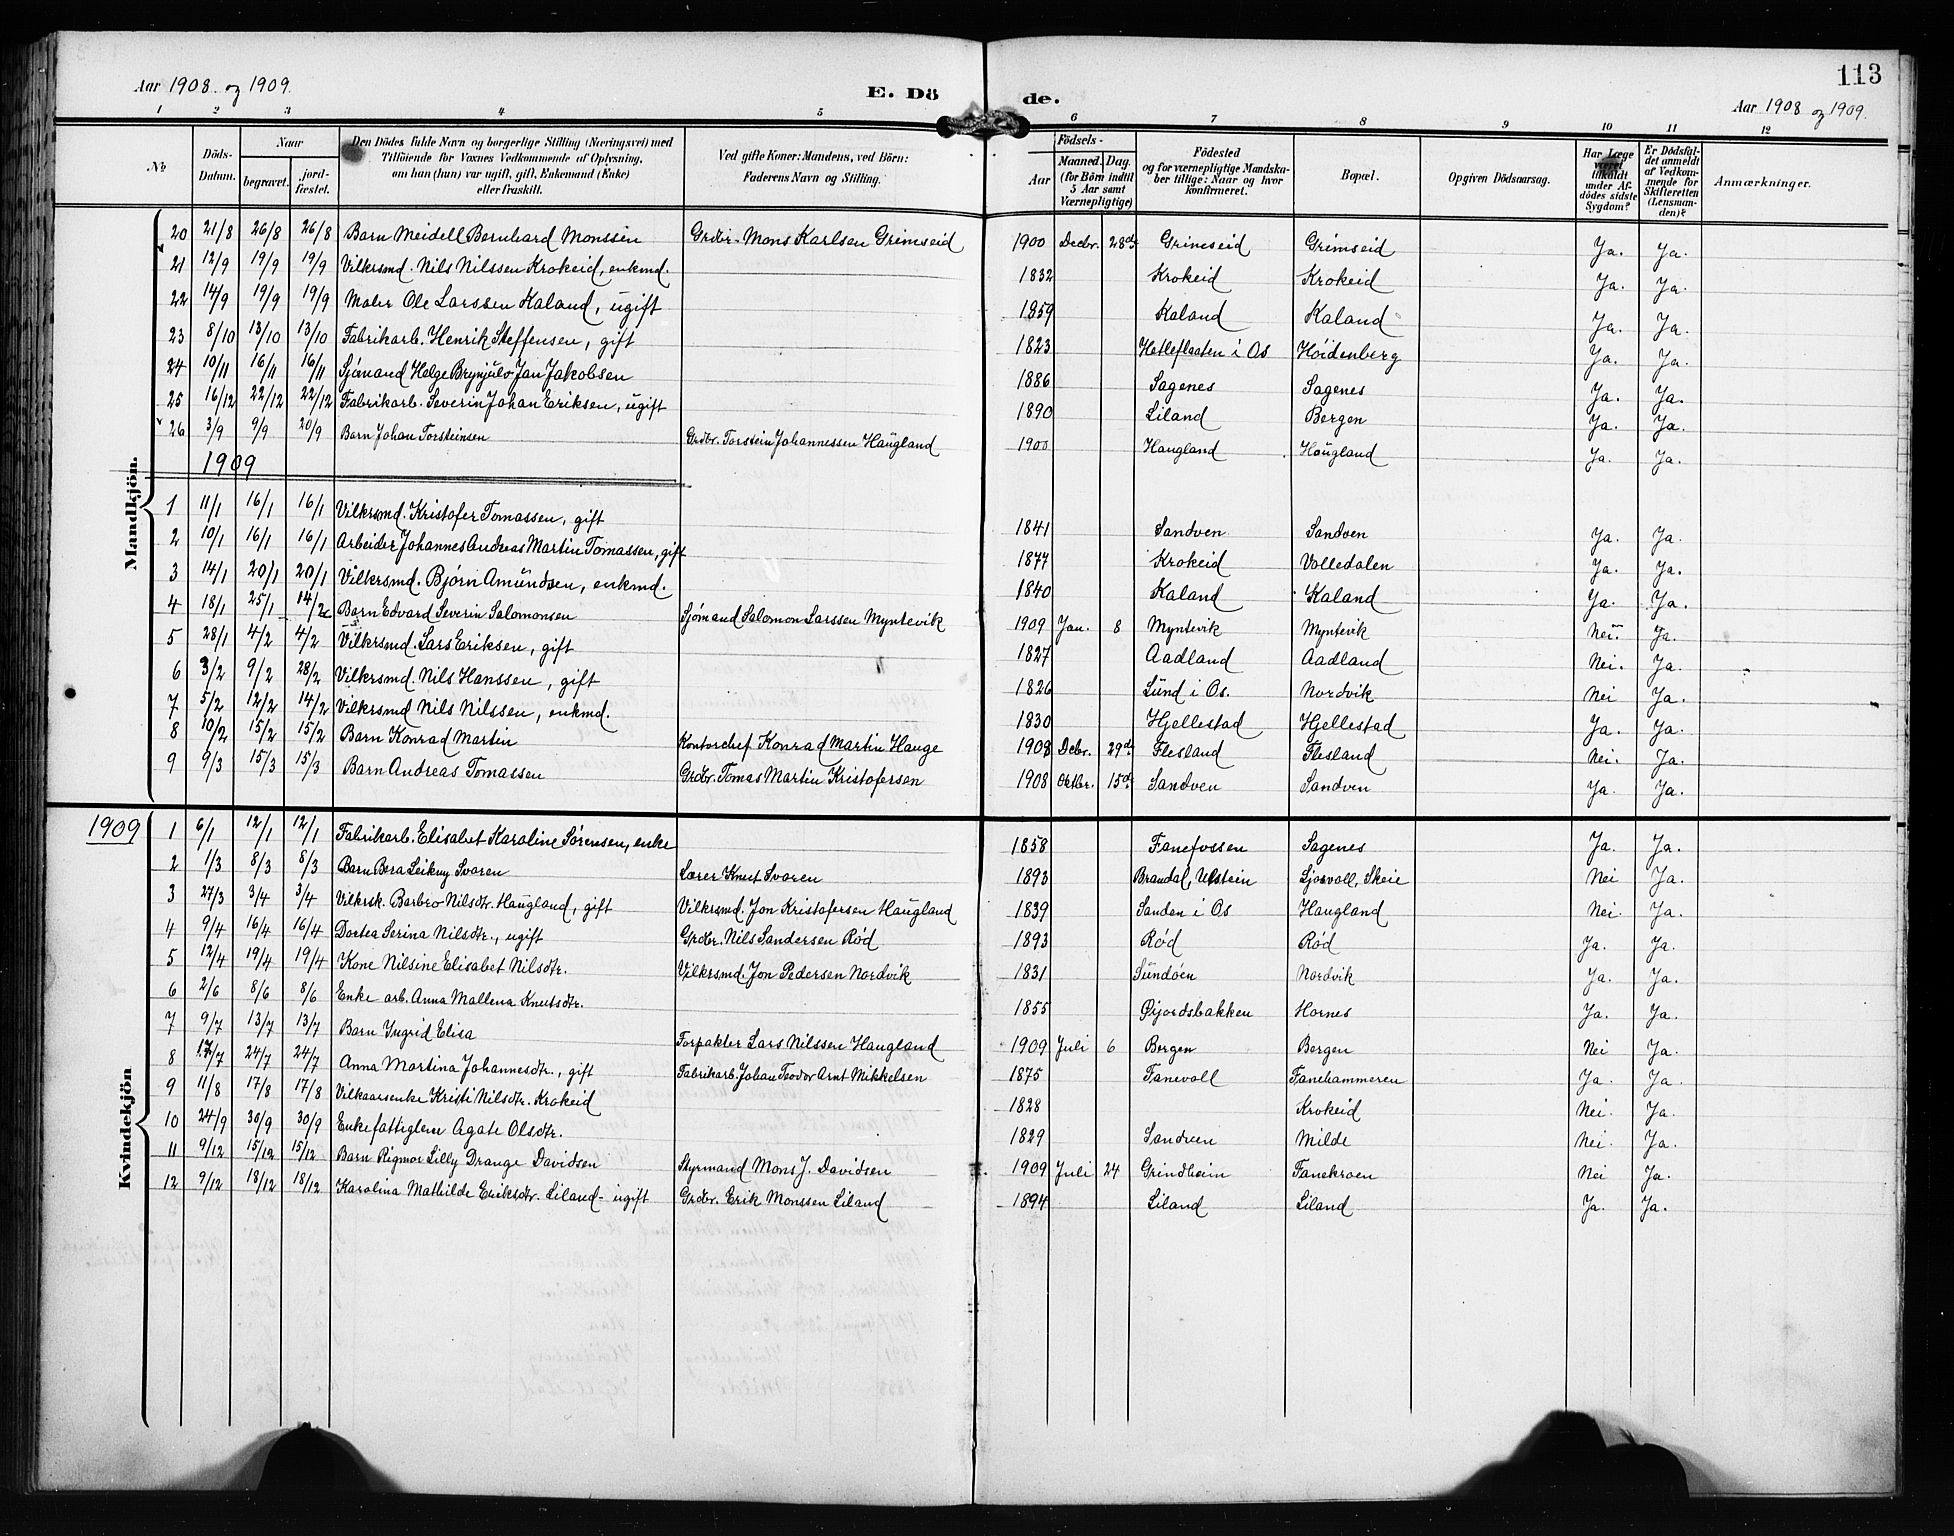 113
Aar 1908 og 1909.
E. Dö de.
Aar 1908 og 1909.
1 2 3 4 5 6 7 8 9 10 11 12
No. Döds-Datum. Naar begravet. jordfæstet. Den Dödes fulde Navn og borgerlige Stilling (Næringsvei) med Tilföiende for Voxnes Vedkommende af Oplysning, om han (hun) var ugift, gift, Enkemand (Enke) eller fraskilt. Ved gifte Koner: Mandens, ved Börn: Faderens Navn og Stilling. Födsels- Aar Maaned. Dag. (for Börn indtil 5 Aar samt Værnepligtige) Födested og for værnepligtige Mandskaber tillige: Naar og hvor konfirmeret. Bopæl. Opgiven Dödsaarsag. Har Læge været tilkaldt under Afdödes sidste Sygdom? Er Dödsfaldet anmeldt af Vedkommende for Skifteretten (Lensmanden)? Anmærkninger.
Mandkjön.
20 21/8 26/8 26/8 Barn Meidell Bernhard Monssen Grdbr. Mons Karlsen Grimseid 1900 Decbr. 28de Grimseid Grimseid Ja. Ja.
21 12/9 19/9 19/9 Vilkrsmd. Nils Nilssen Krokeid, enkmd. 1832 Krokeid Krokeid Ja. Ja.
22 14/9 19/9 19/9 Maler Ole Larssen Kaland, ugift 1859 Kaland Kaland Ja. Ja.
23 8/10 13/10 13/10 Fabrikarb. Henrik Steffensen, gift 1823 Hetleflaaten i Os Höidenberg Ja. Ja.
24 10/11 16/11 16/11 Sjömand Helge Brynjulv Jan Jakobsen 1886 Sagenes Sagenes Ja. Ja.
25 16/12 22/12 22/12 Fabrikarb. Severin Johan Eriksen, ugift 1890 Liland Bergen Ja. Ja.
26 3/9 9/9 20/9 Barn Johan Torsteinsen Grdbr. Torstein Johannessen Haugland 1900 Haugland Haugland Ja. Ja.
1909
1 11/1 16/1 16/1 Vilkrsmd. Kristofer Tomassen, gift 1841 Sandven Sandven Ja. Ja.
2 10/1 16/1 16/1 Arbeider Johannes Andreas Martin Tomassen, gift 1877 Krokeid Volledalen Ja. Ja.
3 14/1 20/1 20/1 Vilkrsmd. Bjørn Amundsen, enkmd. 1840 Kaland Kaland Ja. Ja.
4 18/1 25/1 14/2 Barn Edvard Severin Salomonsen Sjømand Salomon Larssen Myntevik 1909 Jan. 8 Myntevik Myntevik Nei. Ja.
5 28/1 4/2 4/2 Vilkrsmd. Lars Eriksen, gift 1827 Aadland Aadland Nei. Ja.
6 3/2 9/2 28/2 Vilkrsmd. Nils Hanssen, gift 1826 Lund i Os. Nordvik Nei Ja.
7 5/2 12/2 14/2 Vilkrsmd Nils Nilssen, enkmd. 1830 Hjellestad Hjellestad Ja. Ja.
8 10/2 15/2 15/2 Barn Konrad Martin Kontorchef Konrad Martin Hauge 1908 Decbr. 29de Flesland Flesland Nei. Ja.
9 9/3 15/3 15/3 Barn Andreas Tomassen Grdbr. Tomas Martin Kristofersen 1908 Oktbr. 15de Sandven Sandven Ja. Ja.
1909
Kvindekjön
1 6/1 12/1 12/1 Fabrikarb. Elisabet Karoline Sørensen, enke 1858 Fanefossen Sagenes Ja. Ja.
2 1/3 8/3 8/3 Barn Bera Leikny Svoren Lærer Knut Svoren 1893 Brandal, Ulstein Ljosvoll, Skeie Nei Ja.
3 27/3 3/4 3/4 Vilkrsk. Barbro Nilsdtr. Haugland, gift Vilkrsmd. Jon Kristofersen Haugland 1839 Sanden i Os Haugland Nei. Ja.
4 9/4 16/4 16/4 Dortea Serina Nilsdtr., ugift Grdbr. Nils Sandersen Rød 1893 Rød Rød Ja. Ja.
5 12/4 19/4 19/4 Kone Nilsine Elisabet Nilsdtr. Vilkrsmd. Jon Pedersen Nordvik 1831 Sundöen Nordvik Ja. Ja.
6 2/6 8/6 8/6 Enke arb. Anna Mallena Knutsdtr. 1855 Øjordsbakken Hornes Ja. Ja.
7 9/7 13/7 13/7 Barn Ingrid Elisa Forpakter Lars Nilssen Haugland 1909 Juli 6 Bergen Bergen Nei Ja.
8 17/7 24/7 24/7 Anna Martina Johannesdtr., gift Fabrikarb. Johan Teodor Arnt Mikkelsen 1875 Fanevoll Fanehammeren Ja. Ja.
9 11/8 17/8 17/8 Vilkaarsenke Kristi Nilsdtr. Krokeid 1828 Krokeid Nei. Ja.
10 24/9 30/9 30/9 Enke fattiglem Agate Olsdtr. 1829 Sandven Milde Nei. Ja.
11 9/12 15/12 15/12 Barn Rigmor Lilly Drange Davidsen Styrmand Mons J. Davidsen 1909 Juli 24 Grindheim Fanekroen Nei Ja.
12 9/12 18/12 18/12 Karolina Mathilde Eriksdtr. Liland - ugift Grdbr. Erik Monssen Liland 1894 Liland Liland Ja. Ja.